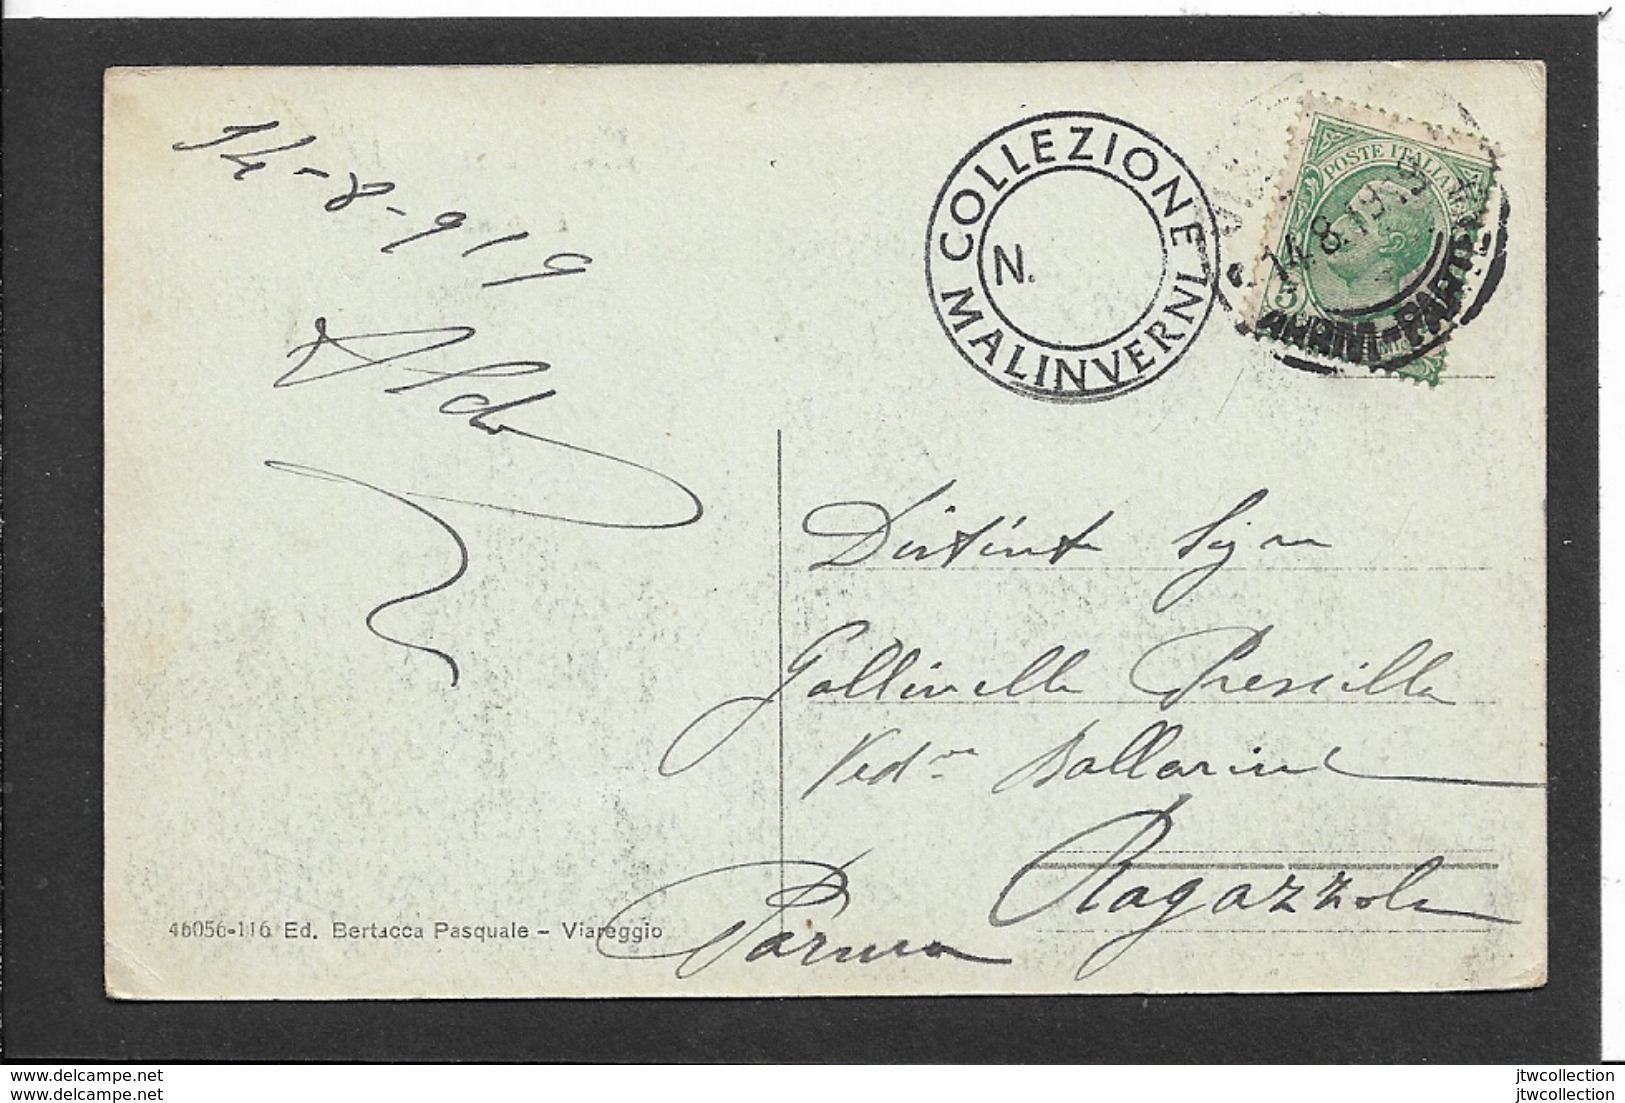 14-8-919
Aldo
COLLEZIONE
MALINVERNI
N.
POSTE ITALIANE
5
14.8.19.19
ARRIVI-PARTENZE
Distinta Sigra
Gallinella Prescilla
Ved. Ballarini
Ragazzola
Parma
46056-116 Ed. Bertacca Pasquale - Viareggio
www.delcampe.net
www.delcampe.net
jtwcollection
jtwcollection